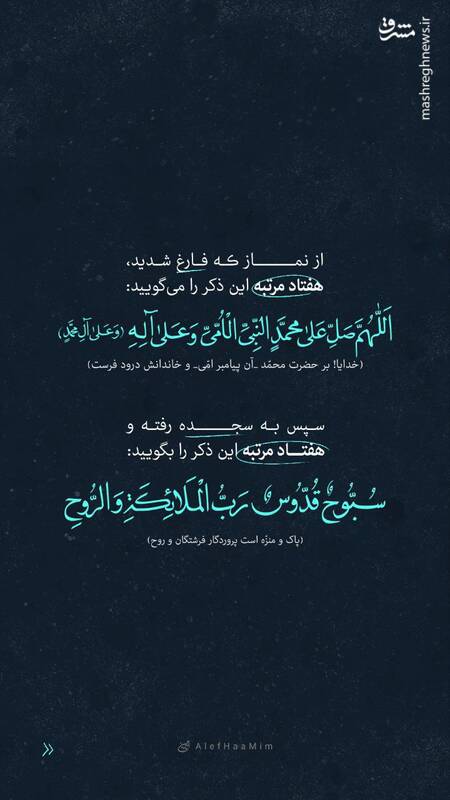 مشرق
mashreghnews.ir
از نمـاز کـه فـارغ شـدید،
هفتاد مرتبه این ذکر را می‌گویید:
اَللّٰهُمَّ صَلِّ عَلیٰ مُحَمَّدٍ النَّبِیِّ الْاُمِّیِّ وَ عَـلیٰ آلِـهِ (وَ عَـلیٰ آلِ مُحَمَّدٍ)
(خدایا! بر حضرت محمّد ـ‌آن پیامبر امّی‌ـ و خاندانش درود فرست)
سـپس بـه سجـده رفتـه و
هفتـاد مرتبه این ذکر را بگویید:
سُـبُّوحٌ قُدّوسٌ رَبُّ الْمَلائِکَةِ وَ الرُّوحِ
(پاک و منزّه است پروردگار فرشتگان و روح)
AlefHaaMim